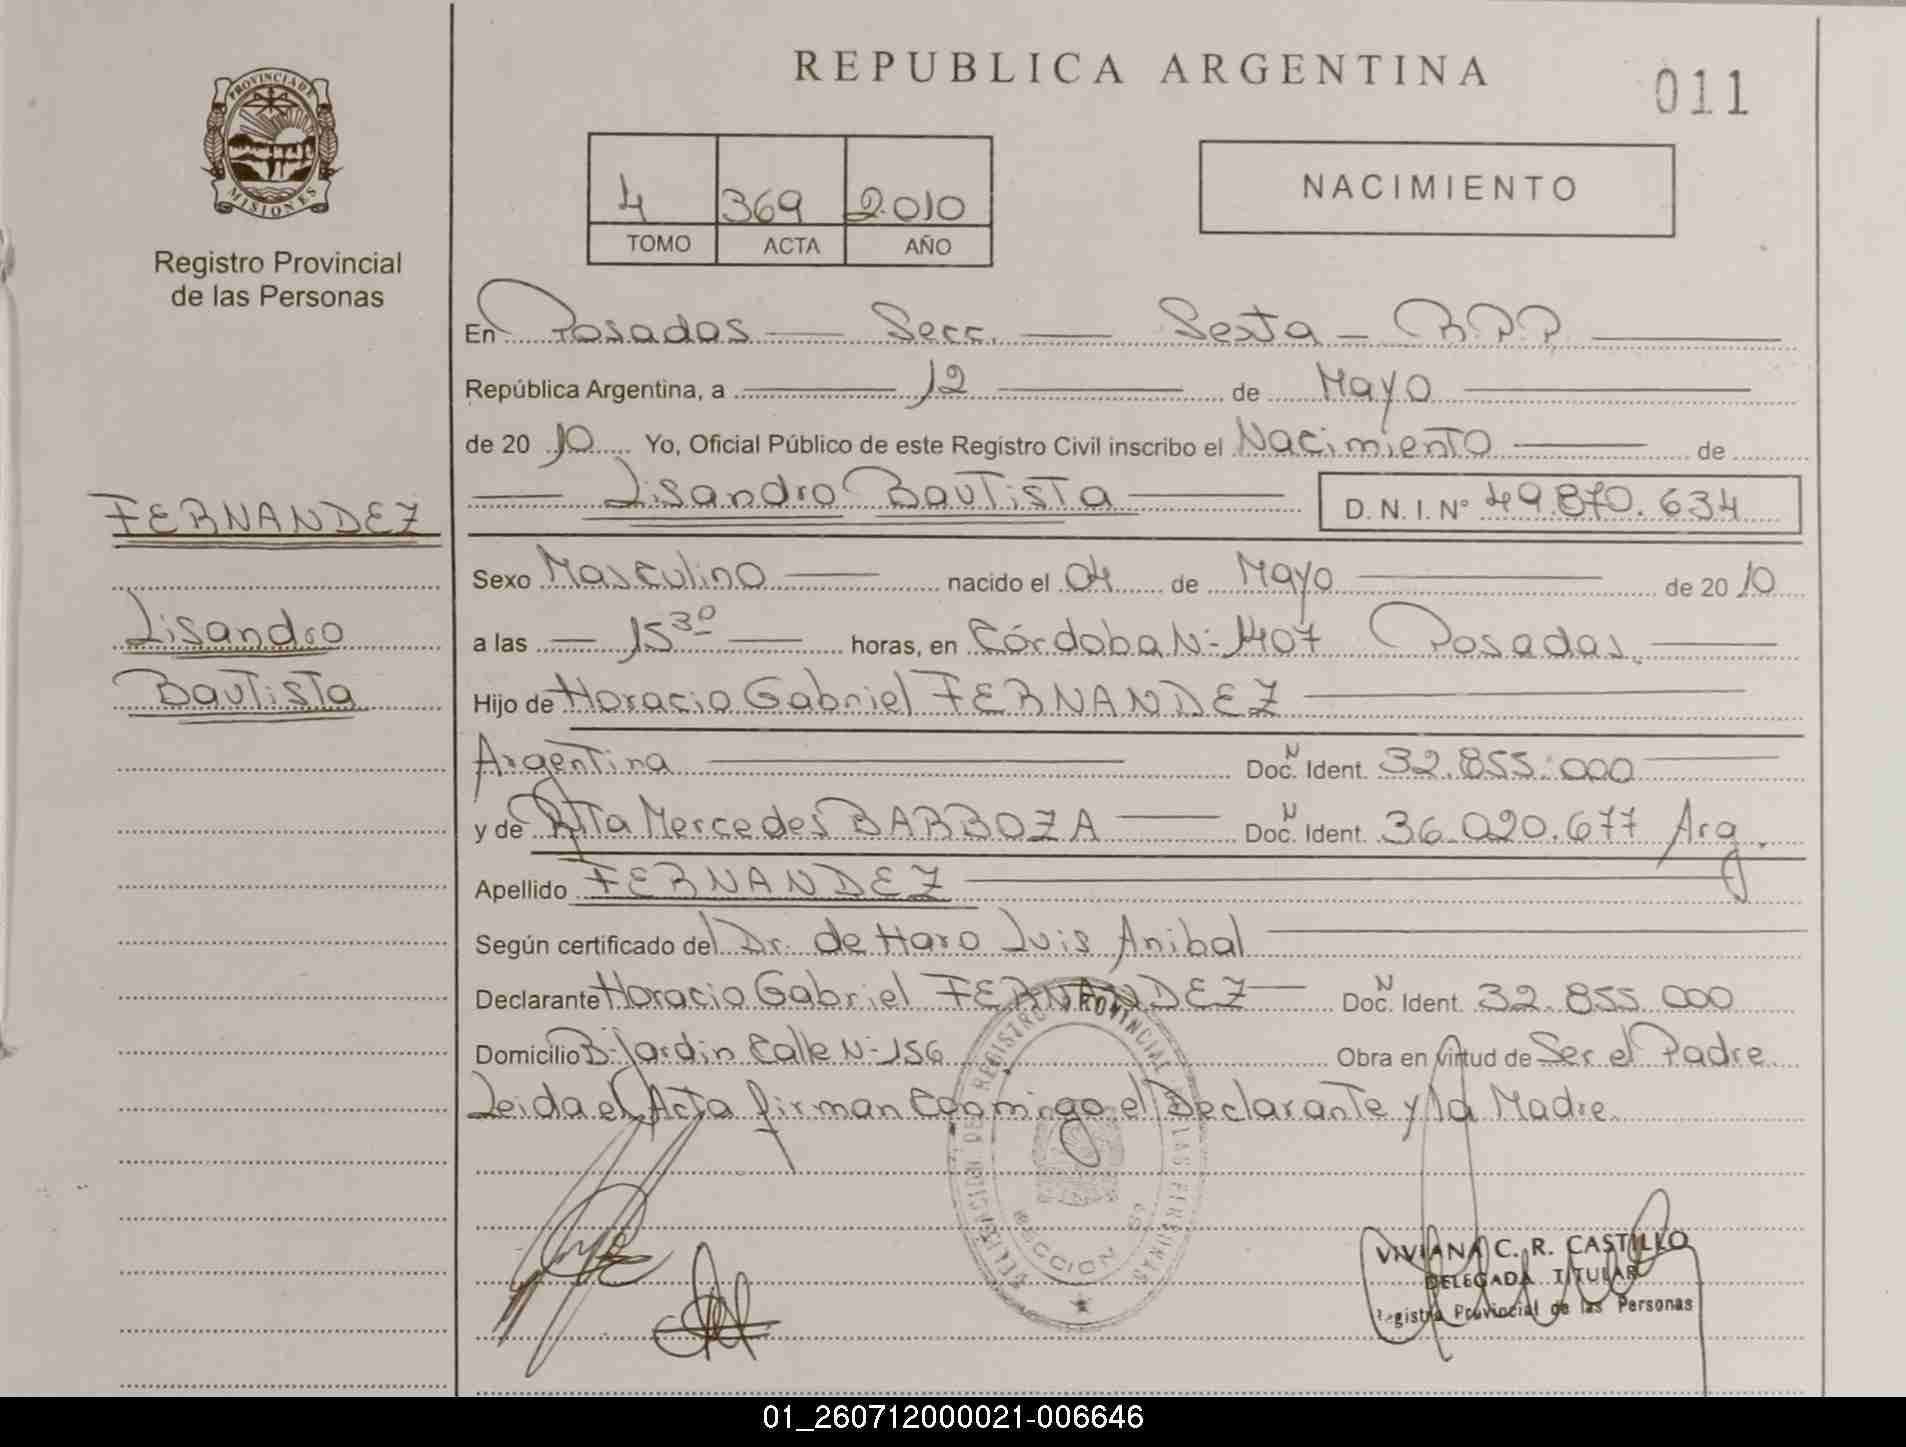 REPUBLICA ARGENTINA
011
PROVINCIA DE
MISIONES
Registro Provincial
de las Personas
4 369 2.010
TOMO ACTA AÑO
NACIMIENTO
En Posadas Secc. Sexta - R.P.P.
República Argentina, a 12 de Mayo
de 20 10 Yo, Oficial Público de este Registro Civil inscribo el Nacimiento de
Lisandro Bautista D. N. I. Nº 49.870.634
FERNANDEZ
Lisandro
Bautista
Sexo Masculino nacido el 04 de Mayo de 20 10
a las 15 30 horas, en Córdoba Nº 1407 Posadas.
Hijo de Horacio Gabriel FERNANDEZ
Argentina Doc. N Ident. 32.855.000
y de Rita Mercedes BARBOZA Doc. N Ident. 36.020.677 Arg.
Apellido FERNANDEZ
Según certificado del Dr. de Haro Luis Anibal
Declarante Horacio Gabriel FERNANDEZ Doc. N Ident. 32.855.000
Domicilio Bº Jardin Calle Nº 156 Obra en virtud de Ser el Padre.
Leida el Acta firman Conmigo el Declarante y la Madre.
DELEGACION DEL REGISTRO PROVINCIAL DE LAS PERSONAS
SECCION 6ª
VIVIANA C. R. CASTILLO
DELEGADA TITULAR
Registro Provincial de las Personas
01_260712000021-006646